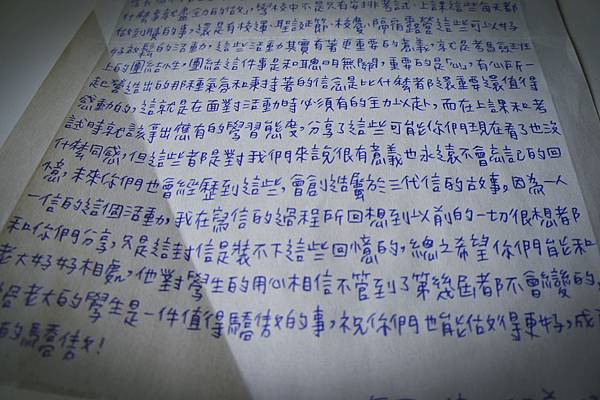 什麼事就盡全力的做，學校中不是只有安排考試、上課這些每天都
做到膩的事，還是有校運、聖誕節、校慶、隔宿露營這些可以好
好放鬆的活動，這些活動其實有著更重要的意義，說老套就是
上的團結性，團結這件事是和聰明無關，重要的是「心」，有心所一
起營造出的那種氣氛和秉持著的信念是比什麼都還重要還值得
感動的，這就是在面對活動時必須有的全力以赴，而在上課和考
試時就該拿出應有的學習態度，分享了這些可能你們現在看了也沒
什麼同感，但這些都是對我們來說很有意義也永遠不會忘記的回
憶，未來你們也會經歷到這些，會創造屬於三代信的故事，因為一人
一信的這個活動，我在寫信的過程所回想到以前的一切很想都
和你們分享，只是這封信是裝不下這些回憶的，總之希望你們能和
老大好好相處，他對學生的用心相信不管到了第幾屆都不會變的，
當老大的學生是一件值得驕傲的事，祝你們也能做得更好，成
的驕傲！